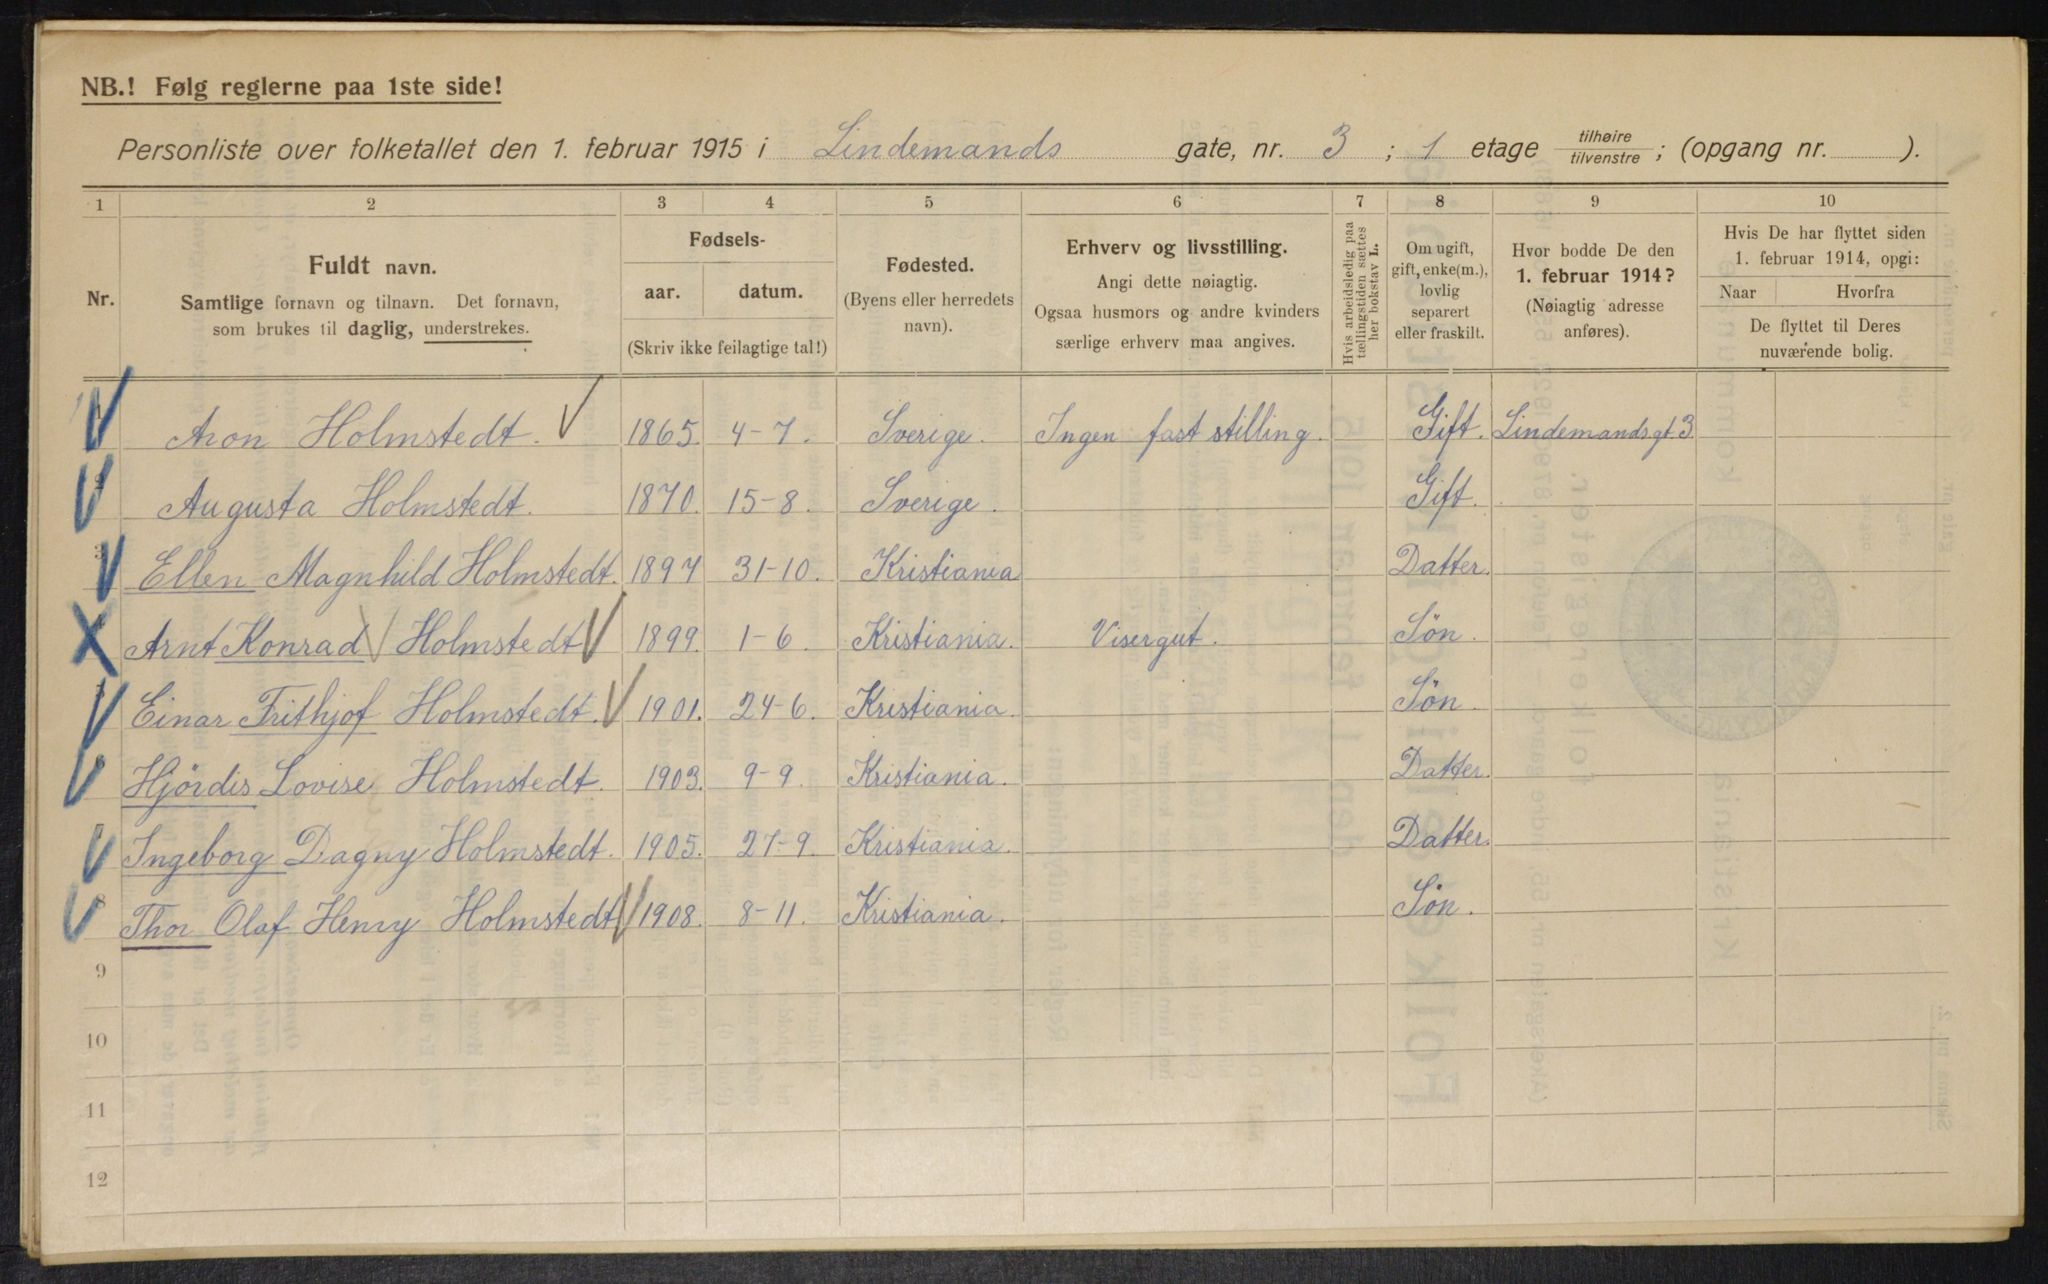 NB.! Følg reglerne paa 1ste side!
Personliste over folketallet den 1. februar 1915 i Lindemands gate, nr. 3 ; 1 etage tilhøire/tilvenstre; (opgang nr. ).
1 2 3 4 5 6 7 8 9 10
Nr.
Fuldt navn.
Samtlige fornavn og tilnavn. Det fornavn,
som brukes til daglig, understrekes.
Fødsels-
aar. datum.
(Skriv ikke feilagtige tal!)
Fødested.
(Byens eller herredets
navn).
Erhverv og livsstilling.
Angi dette nøiagtig.
Ogsaa husmors og andre kvinders
særlige erhverv maa angives.
Hvis arbeidsledig paa
tællingstiden sættes
her bokstav L.
Om ugift,
gift, enke(m.),
lovlig
separert
eller fraskilt.
Hvor bodde De den
1. februar 1914?
(Nøiagtig adresse
anføres).
Hvis De har flyttet siden
1. februar 1914, opgi:
Naar Hvorfra
De flyttet til Deres
nuværende bolig.
1 Aron Holmstedt. 1865. 4-7. Sverige. Ingen fast stilling. Gift. Lindemandsgt. 3
2 Augusta Holmstedt. 1870. 15-8. Sverige. Gift.
3 Ellen Magnhild Holmstedt. 1897 31-10. Kristiania Datter.
4 Arnt Konrad Holmstedt 1899. 1-6. Kristiania. Visergut. Søn.
5 Einar Frithjof Holmstedt. 1901. 24-6. Kristiania. Søn.
6 Hjördis Lovise Holmstedt. 1903. 9-9. Kristiania. Datter.
7 Ingeborg Dagny Holmstedt. 1905. 27-9. Kristiania. Datter.
8 Thor Olaf Henry Holmstedt 1908. 8-11. Kristiania. Søn.
9
10
11
12